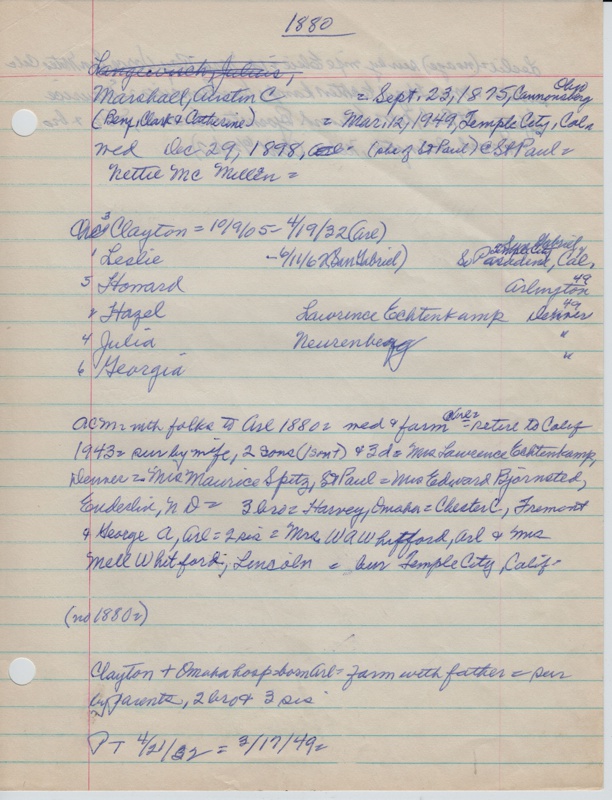 1880
Langlovich, Julius,
Marshall, Austin C = Sept. 23, 1875, Cannonsberg Ohio
(Benj. Clark & Catherine) = Mar. 12, 1949, Temple City, Cal
med Dec 29, 1898, Arl = (obs of St Paul) C St Paul =
Nettie Mc Millen =
Chi 3 Clayton = 10/9/05 - 4/19/32 (Arl)
1 Leslie - 6/11/62 (San Gabriel) So Pasadena, Cal, Temple City San Gabriel
5 Howard Arlington 49
2 Hazel Lawrence Echtenkamp Denver 49
4 Julia Neurenberg "
6 Georgia "
ACM = with folks to Arl 1880 = med & farm = retire to Calif
1943 = sur by wife, 2 sons (1 son +) & 3 d = Mrs Lawrence Echtenkamp,
Denver = Mrs Maurice Spitz, St Paul = Mrs Edward Bjornsted,
Enderlin, N D = 3 bro = Harvey, Omaha = Chester C, Fremont
& George A, Arl = 2 sis = Mrs. W A Whitford, Arl & Mrs
Mell Whitford, Lincoln = bur Temple City, Calif -
(no 1880 =)
Clayton + Omaha hosp = born Arl = farm with father = sur
by parents, 2 bro & 3 sis
P T 4/21/32 = 3/17/49 =